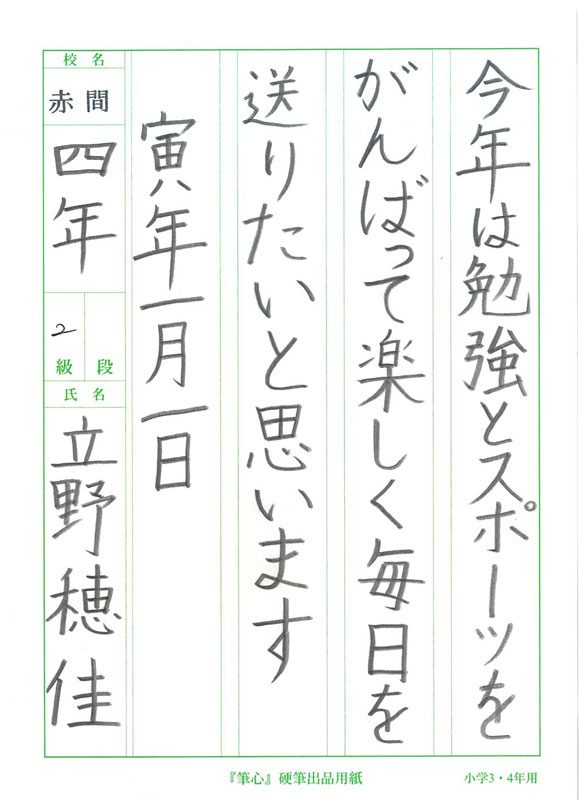 今年は勉強とスポーツを
がんばって楽しく毎日を
送りたいと思います
寅年一月一日
校名
赤間
四年
2
級段
氏名
立野穂佳
『筆心』硬筆出品用紙
小学3・4年用